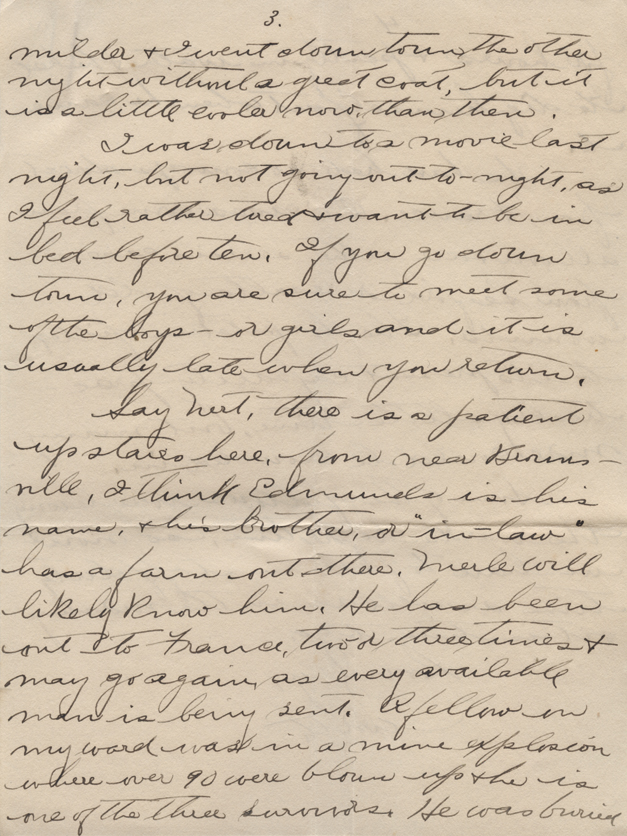 3.
milder & I went down town, the other
night without a great coat, but it
is a little cooler now, than then.
I was down to a movie last
night, but not going out to-night, as
I feel rather tired & want to be in
bed before ten. If you go down
town, you are sure to meet some
of the boys - or girls and it is
usually late when you return.
Say Nert, there is a patient
upstairs here, from near Browns-
ville, I think Edmunds is his
name, & his brother, or "in-law"
has a farm out there. Merle will
likely know him. He has been
out to France, two or three times &
may go again, as every available
man is being sent. A fellow on
my ward was in a mine explosion
where over 90 were blown up & he is
one of the three survivors. He was buried